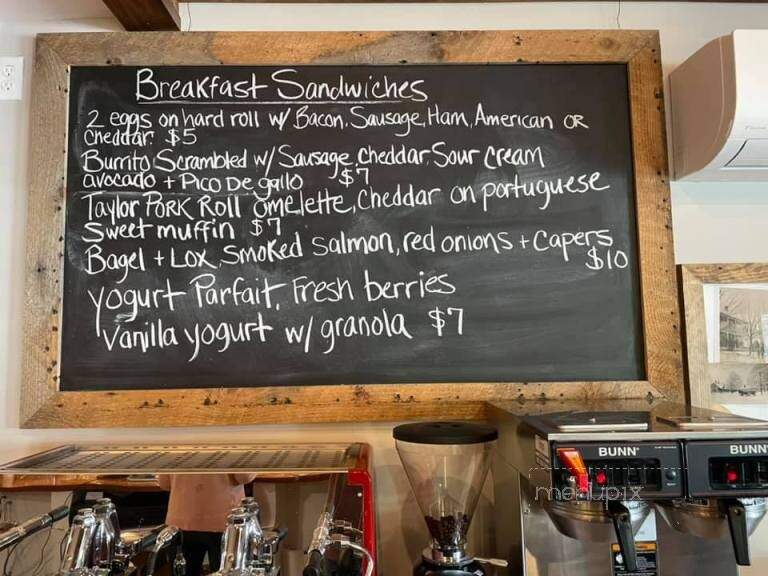 Breakfast Sandwiches
2 eggs on hard roll w/ Bacon, Sausage, Ham, American OR
Cheddar. $5
Burrito Scrambled w/ Sausage, Cheddar, Sour Cream
avocado + Pico De gallo $7
Taylor Pork Roll omelette, Cheddar on portuguese
Sweet muffin $7
Bagel + Lox, Smoked Salmon, red onions + Capers
$10
Yogurt Parfait, Fresh berries
Vanilla yogurt w/ granola $7
BUNN
BUNN
menupix